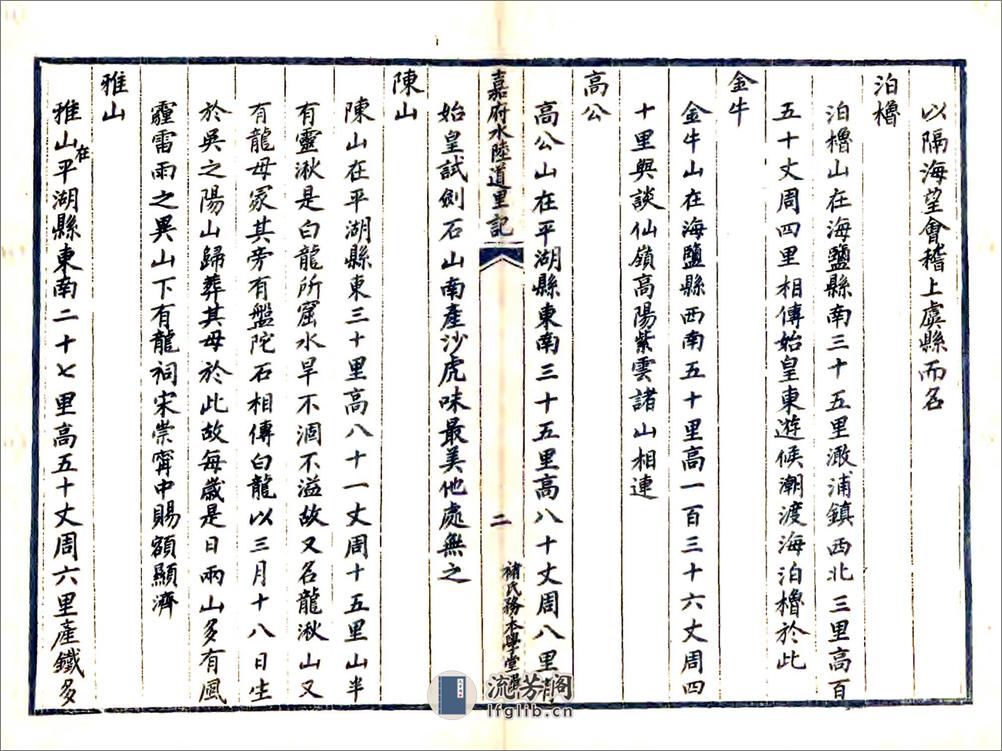 以隔海望會稽上虞縣而名
泊櫓
泊櫓山在海鹽縣南三十五里澉浦鎮西北三里高百
五十丈周四里相傳始皇東遊候潮渡海泊櫓於此
金牛
金牛山在海鹽縣西南五十里高一百三十六丈周四
十里與談仙嶺高陽紫雲諸山相連
高公
高公山在平湖縣東南三十五里高八十丈周八里
嘉府水陸道里記
二
褚氏務本學堂
始皇試劍石山南產沙虎味最美他處無之
陳山
陳山在平湖縣東三十里高八十一丈周十五里山半
有靈湫是白龍所窟水旱不涸不溢故又名龍湫山又
有龍母冢其旁有盤陀石相傳白龍以三月十八日生
於吳之陽山歸葬其母於此故每歲是日兩山多有風
霾雷雨之異山下有龍祠宋崇甯中賜額顯濟
雅山
雅山在平湖縣東南二十七里高五十丈周六里產鐵多
流芳閣
lfglib.cn